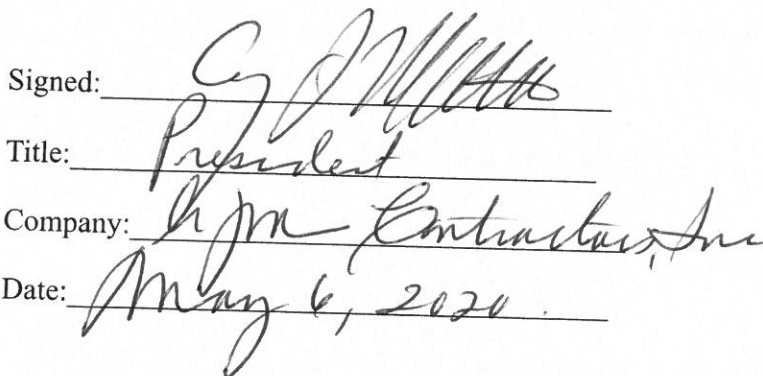 Signed:
Title: President
Company: Contractors, Inc
Date: May 6, 2020.